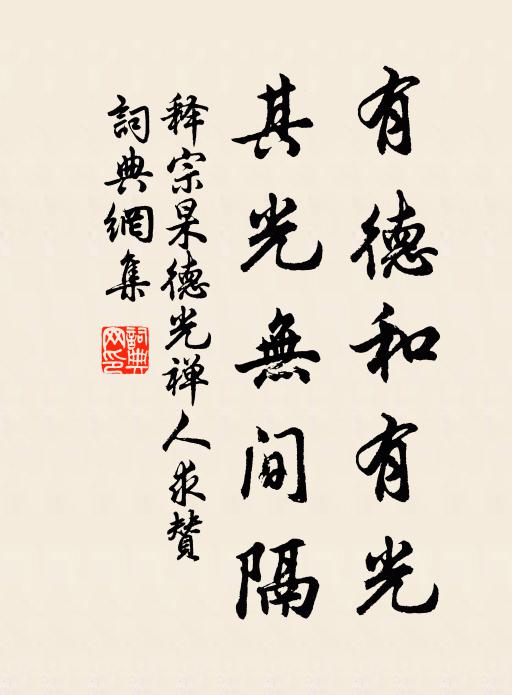 有德和有光
其光無间隔
释宗杲德光禅人求贊
詞典網集
詞典網印